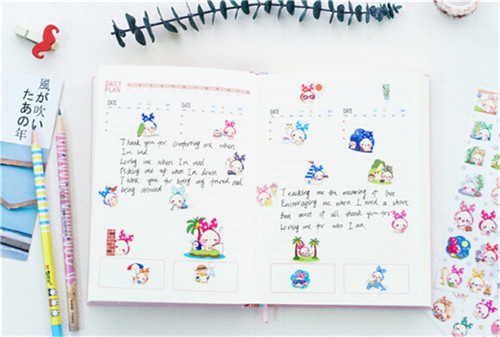 風が吹い
たあの年
DAILY
PLAN
DATE
DATE
DATE
DATE
Thank you for comforting me when
I'm sad
Loving me when I'm mad
Picking me up when I'm down
Thank you for being my friend and
being around
Teaching me the meaning of love
Encouraging me when I need a shove
But most of all thank you for
Loving me for who I am